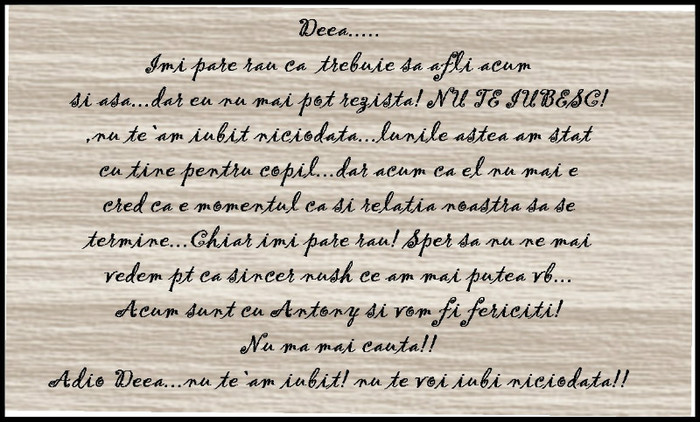 Deea.....
Imi pare rau ca trebuie sa afli acum
si asa...dar eu nu mai pot rezista! NU TE IUBESC!
,nu te`am iubit niciodata...lunile astea am stat
cu tine pentru copil...dar acum ca el nu mai e
cred ca e momentul ca si relatia noastra sa se
termine...Chiar imi pare rau! Sper sa nu ne mai
vedem pt ca sincer nush ce am mai putea vb...
Acum sunt cu Antony si vom fi fericiti!
Nu ma mai cauta!!
Adio Deea...nu te`am iubit! nu te voi iubi niciodata!!